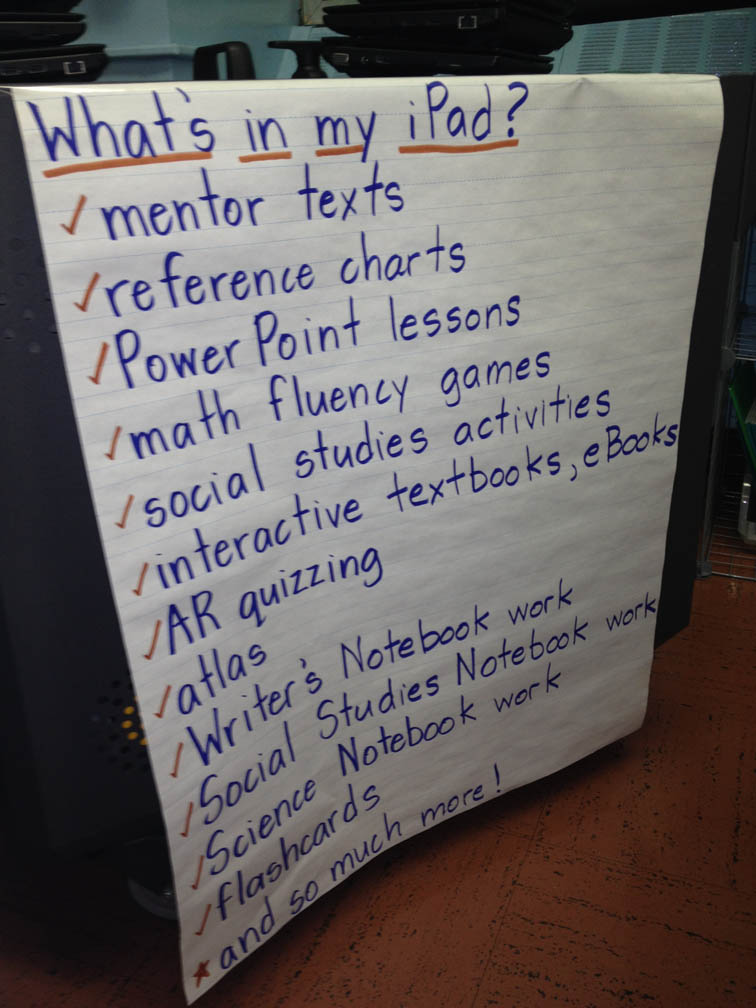 What's in my iPad?
✓ mentor texts
✓ reference charts
✓ PowerPoint lessons
✓ math fluency games
✓ social studies activities
✓ interactive textbooks, eBooks
✓ AR quizzing
✓ atlas
✓ Writer's Notebook work
✓ Social Studies Notebook work
✓ Science Notebook work
✓ flashcards
★ and so much more!